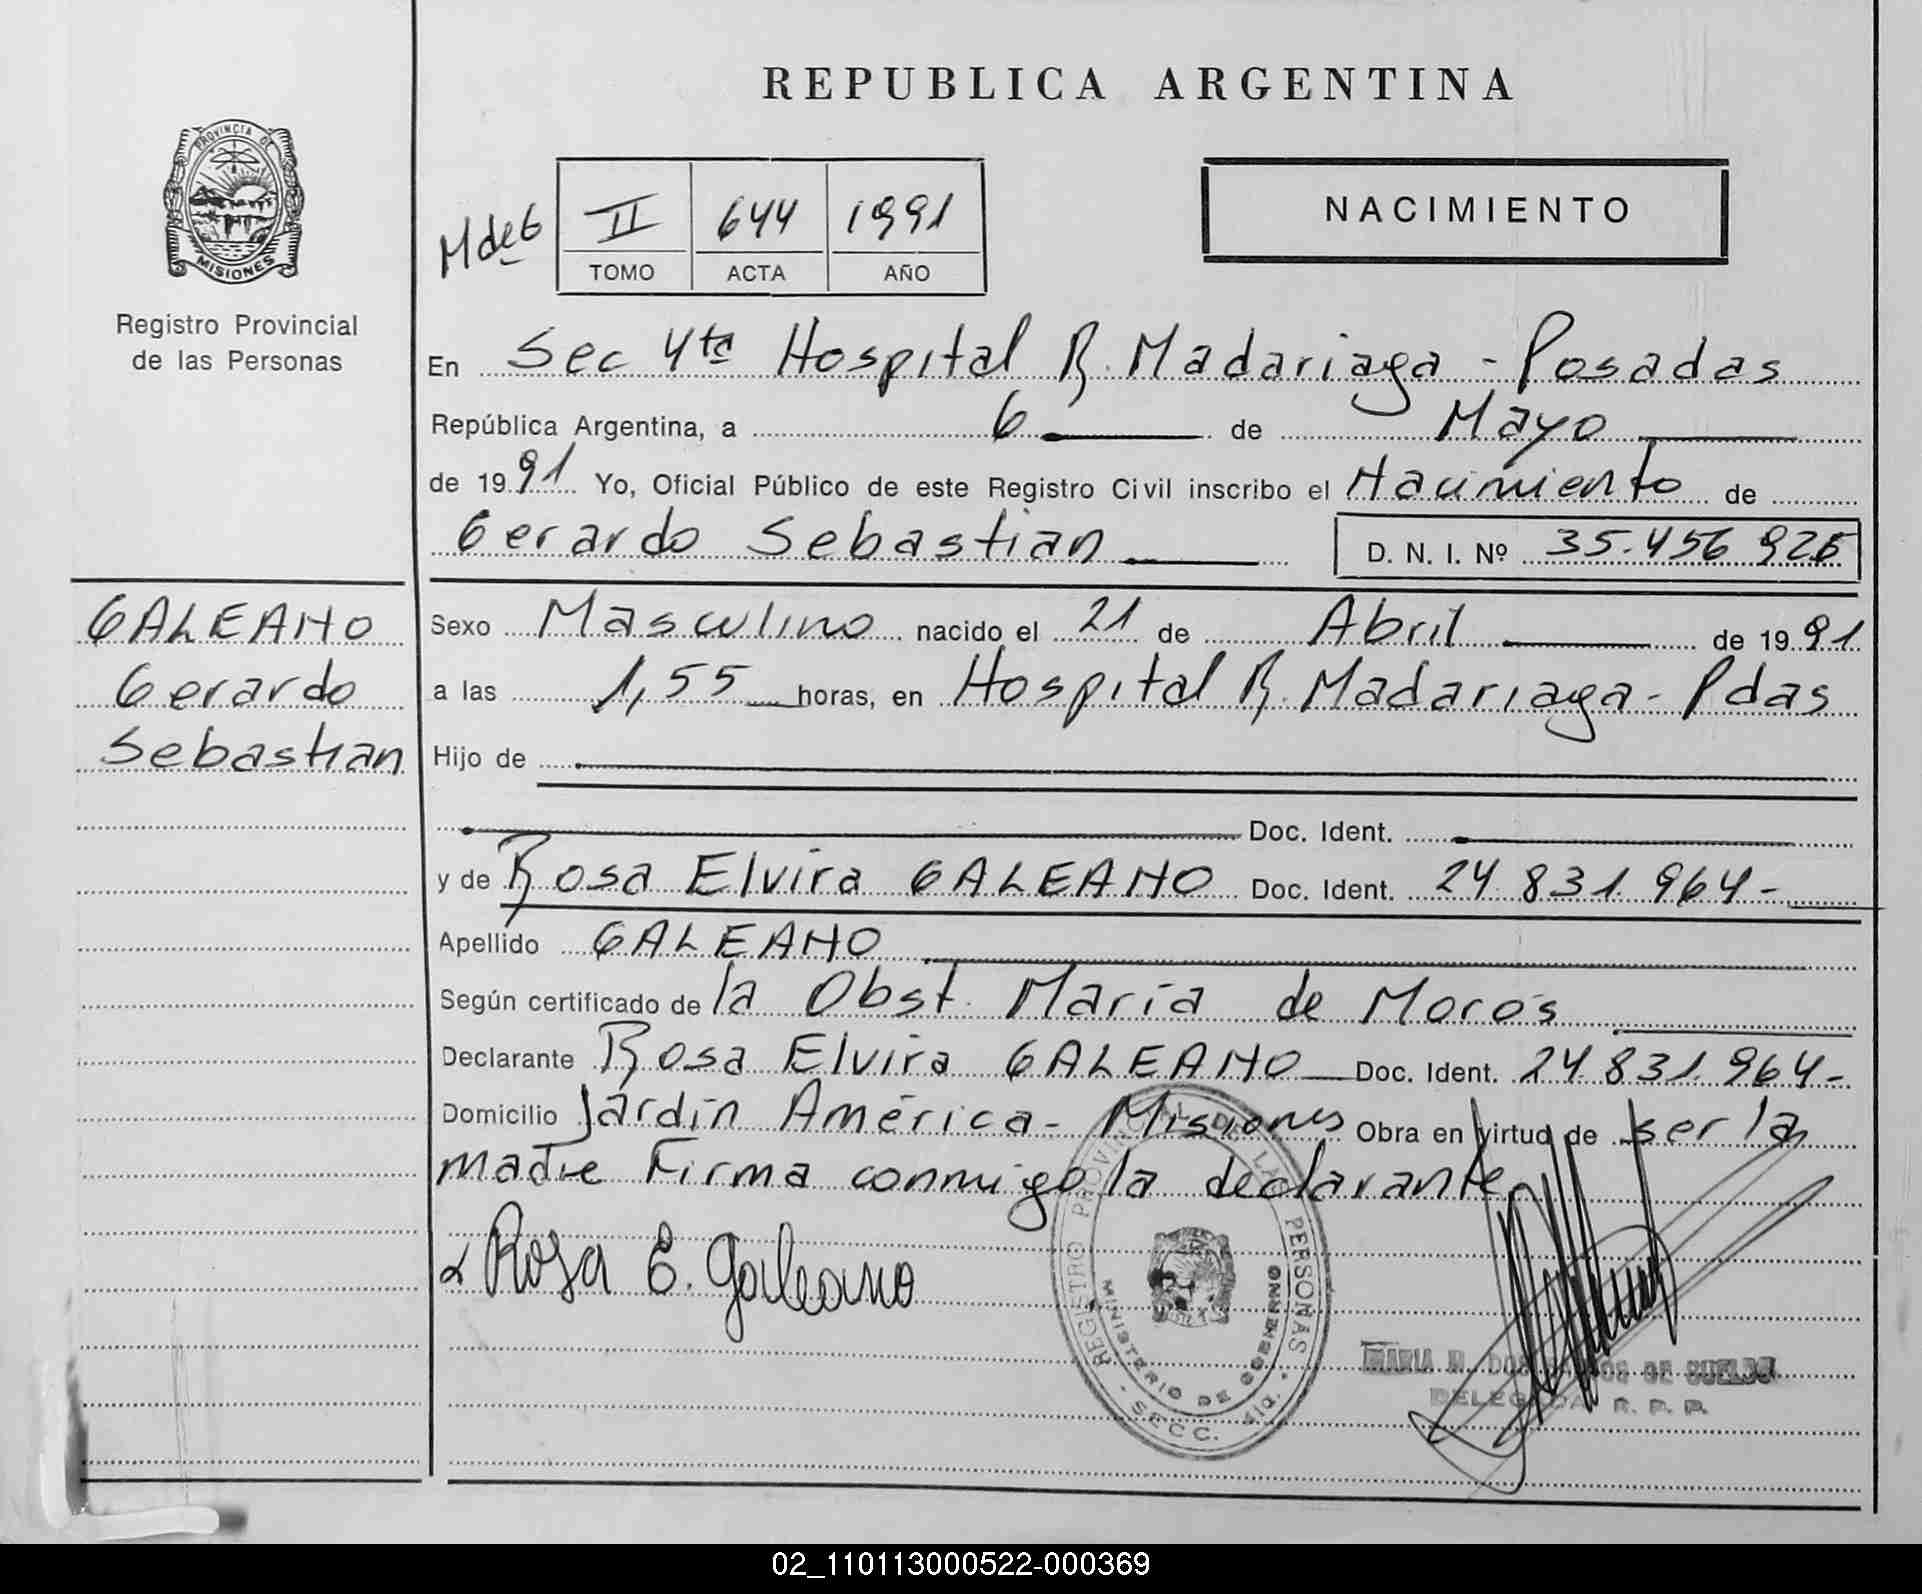 REPUBLICA ARGENTINA
PROVINCIA DE
MISIONES
Registro Provincial
de las Personas
II 644 1991
TOMO ACTA AÑO
NACIMIENTO
En Sec 4ta Hospital R. Madariaga - Posadas
República Argentina, a 6 de Mayo
de 1991 Yo, Oficial Público de este Registro Civil inscribo el Nacimiento de
Gerardo Sebastian D. N. I. Nº 35.456 926
GALEANO
Gerardo
Sebastian
Sexo Masculino nacido el 21 de Abril de 1991
a las 1,55 horas, en Hospital R. Madariaga - Pdas
Hijo de
Doc. Ident.
y de Rosa Elvira GALEANO Doc. Ident. 24.831.964-
Apellido GALEANO
Según certificado de la Obst. María de Moros
Declarante Rosa Elvira GALEANO Doc. Ident. 24.831.964-
Domicilio Jardín América - Misiones Obra en virtud de ser la
madre Firma conmigo la declarante
Rosa E. Galeano
REGISTRO PROVINCIAL DE LAS PERSONAS
MINISTERIO DE GOBIERNO
SECC. 4ta.
MARIA DOS DE
DELEGADA R. P. P.
02_110113000522-000369